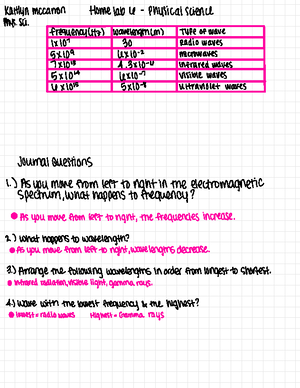 Kaitlyn mccanon Home lab 6 - Physical science
Phy. Sci.
frequency(Hz) wavelength(m) Type of wave
30 Radio waves
microwaves
infrared waves
visible waves
ultraviolet waves
Journal Questions
1.) As you move from left to right in the electromagnetic
spectrum, what happens to frequency?
As you move from left to right, the frequencies increase.
2.) what happens to wavelength?
As you move from left to right, wavelengths decrease.
3.) Arrange the following wavelengths in order from longest to shortest.
infrared radiation, visible light, gamma rays.
4.) wave with the lowest frequency & the highest?
lowest = radio waves Highest = Gamma rays